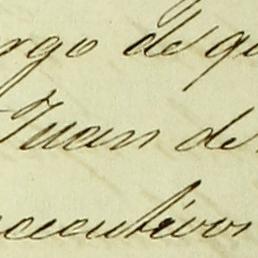 rgo de qu
Juan de
ecutivos